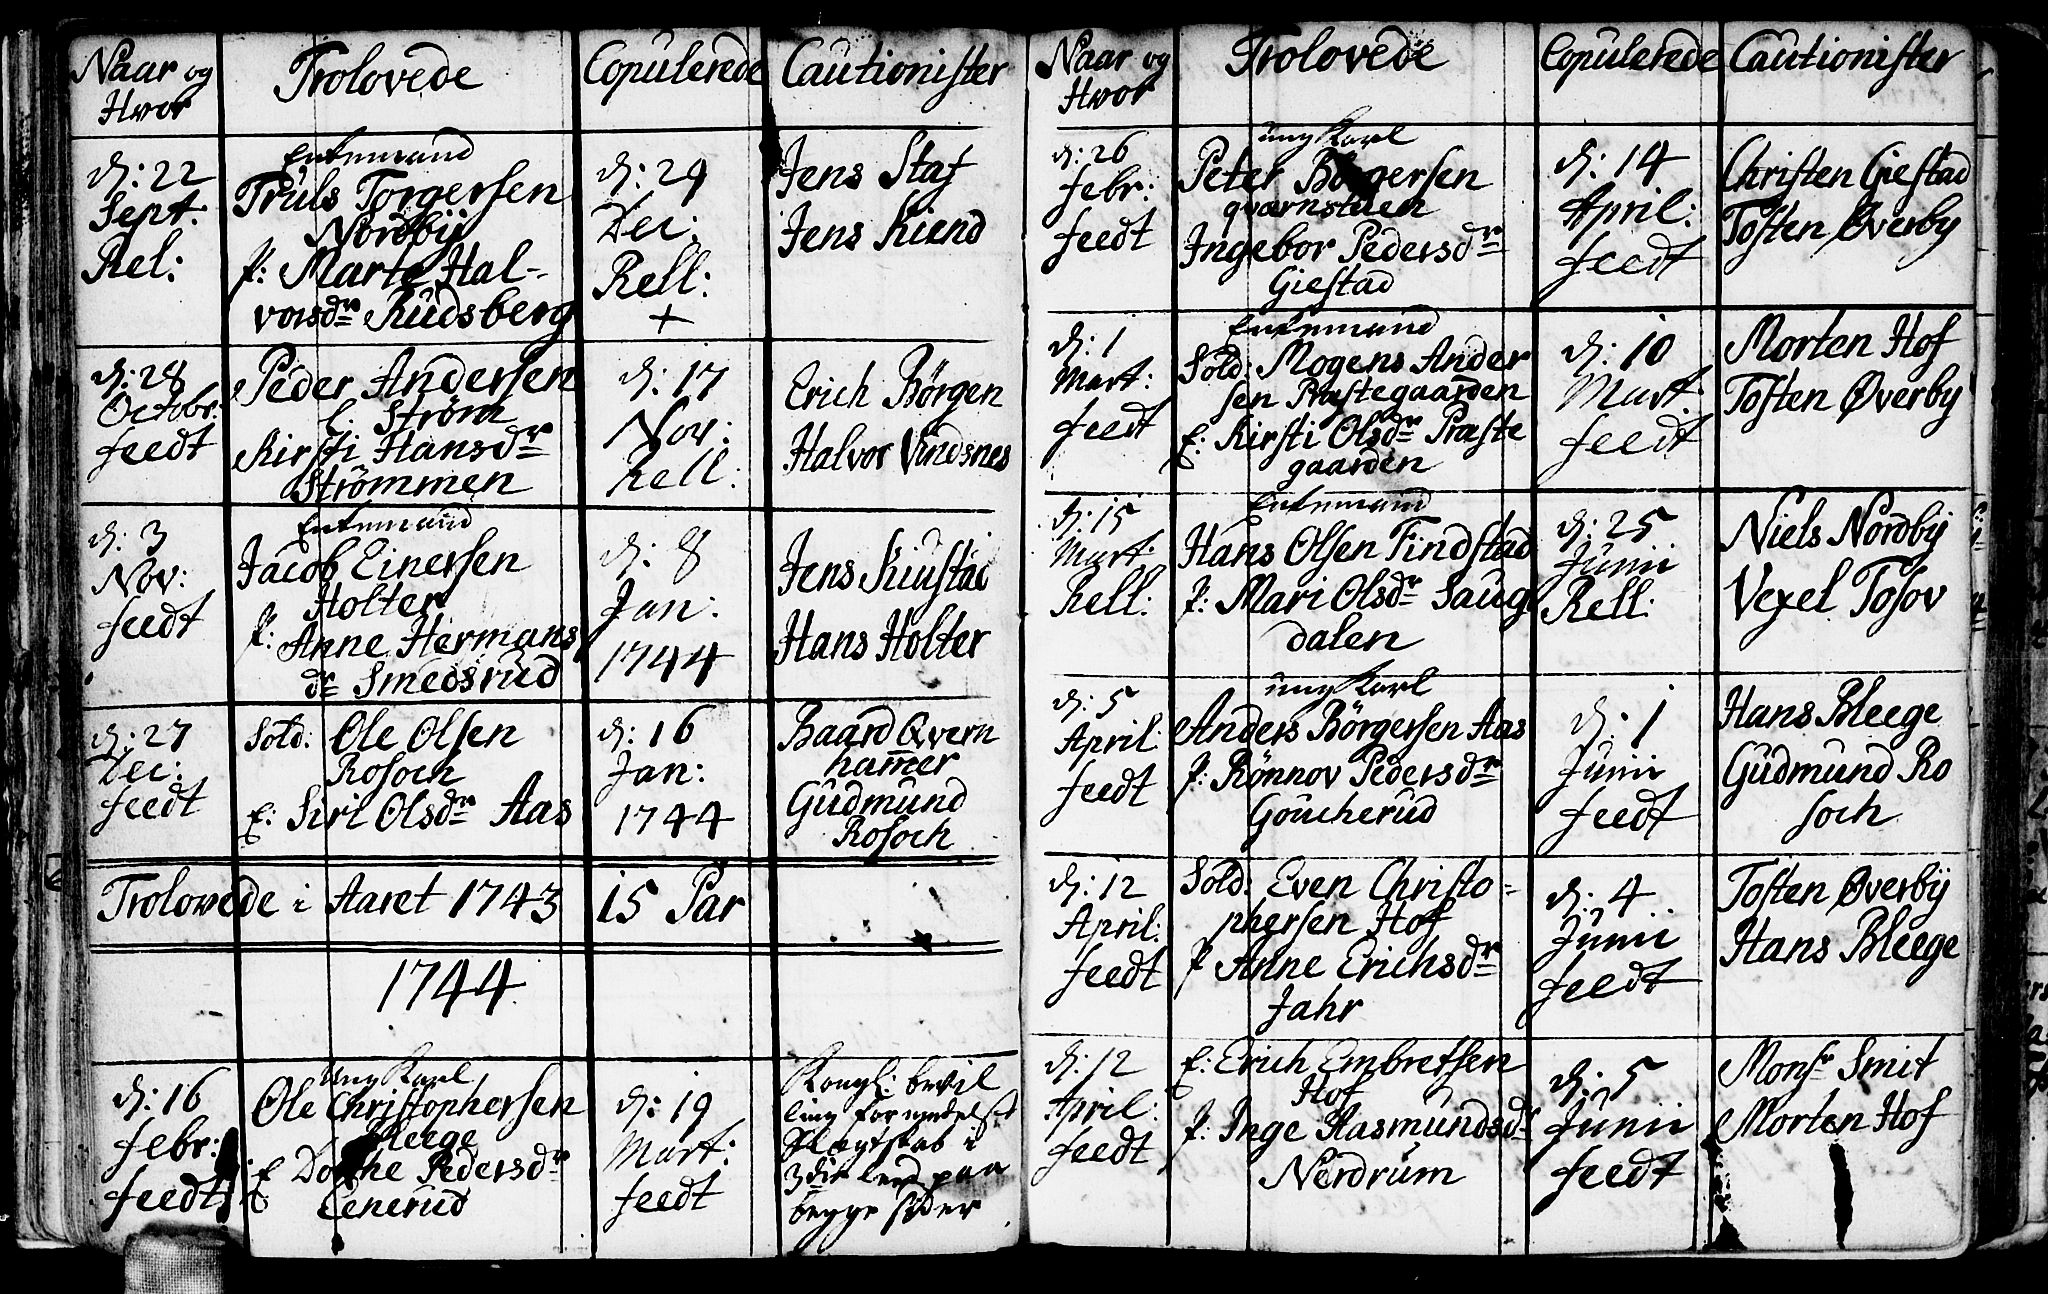 Naar og
Hvor
Trolovede
Copulerede
Cautionister
d: 22
Sept.
Rel:
Enkemand
Truls Torgersen
Nordbÿ
P: Marte Hal-
vorsdr Rudsberg
d: 29
Dec:
Rell:
+
Jens Staf
Jens Kiend
d: 28
Octobr:
feedt
Peder Andersen
Strøm
Kirsti Hansdr
Strømmen
d: 17
Nov:
Rell:
Erich Börgen
Halvor Vindsnes
d: 3
Nov:
feedt
Enkemand
Jacob Einersen
Holter
P: Anne Hermans
dr Smedsrud
d: 8
Jan:
1744
Jens Kiustad
Hans Holter
d: 27
Dec:
feedt
Sold: Ole Olsen
Rosoch
E: Siri Olsdr Aas
d: 16
Jan:
1744
Baard Qvern
hammer
Gudmund
Rosoch
Trolovede i Aaret 1743 15 Par
1744
d: 16
febr:
feedt
Ung Karl
Ole Christophersen
Bleege
E Dorthe Pedersdr
Eenerud
d: 19
Mart:
feedt
Kongl: bevil
ling formedelst
Slegtskab i
3die led paa
begge sider
Naar og
Hvor
Trolovede
Copulerede
Cautionister
d: 26
febr:
feedt
ung Karl
Peter Börgersen
qværnstuen
Ingebor Pedersdr
Giestad
d: 14
April:
feedt
Christen Giestad
Tosten Øverby
d: 1
Mart:
feedt
Enkemand
Sold: Mogens Ander
sen Præstegaarden
E: Kirsti Olsdr Præste
gaarden
d: 10
Mart:
feedt
Morten Hof
Tosten Øverby
d: 15
Mart:
Rell:
Enkemand
Hans Olsen Findstad
P: Mari Olsdr Saug
dalen
d: 25
Junii
Rell:
Niels Nordbÿ
Vexel Tosov
d: 5
April
feedt
ung Karl
Anders Börgersen Aas
P: Rönnov Pedersdr
Goucherud
d: 1
Junii
feedt
Hans Bleege
Gudmund Ro
soch
d: 12
April:
feedt
Sold: Even Christo-
phersen Hof
P Anne Erichsdr
Jahr
d: 4
Junii
feedt
Tosten Øverbÿ
Hans Bleege
d: 12
April:
feedt
E: Erich Embretsen
Hof
P: Inge Aasmundsdr
Nerdrum
d: 5
Junii
feedt
Monsr Smit
Morten Hof